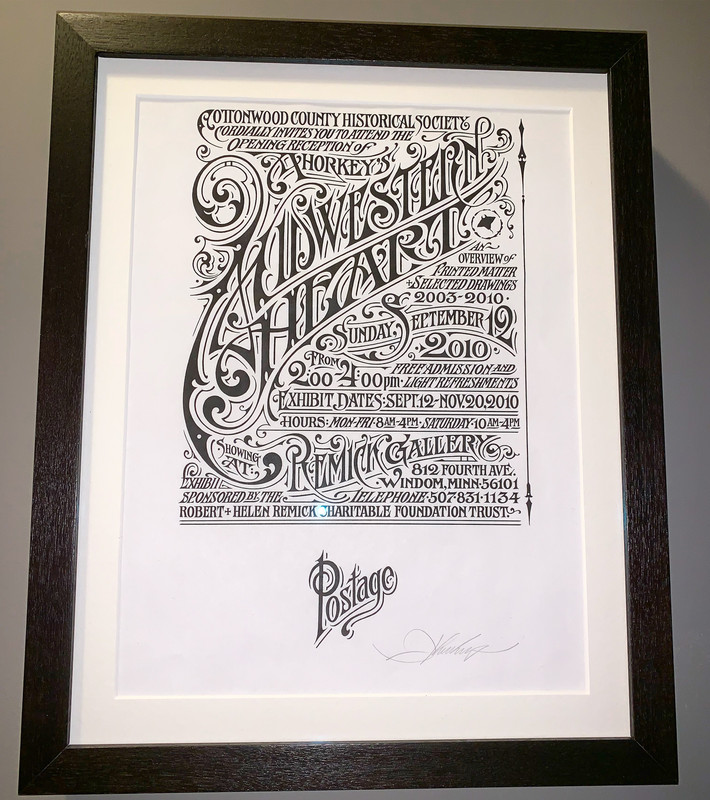 COTTONWOOD COUNTY HISTORICAL SOCIETY
CORDIALLY INVITES YOU TO ATTEND THE
OPENING RECEPTION OF
XHORKEY'S
MIDWESTERN
HEART
AN
OVERVIEW OF
PRINTED MATTER
+ SELECTED DRAWINGS
2003-2010.
SUNDAY, SEPTEMBER 12
2010
FROM
2:00 4:00pm
FREE ADMISSION AND
LIGHT REFRESHMENTS
EXHIBIT, DATES: SEPT. 12-NOV. 20, 2010
HOURS: MON-FRI 8AM-4PM SATURDAY 10AM-4PM
SHOWING
AT:
REMICK GALLERY
812 FOURTH AVE.
WINDOM, MINN. 56101
EXHIBIT
SPONSORED BY THE
TELEPHONE 507·831·1134
ROBERT + HELEN REMICK CHARITABLE FOUNDATION TRUST.
Postage